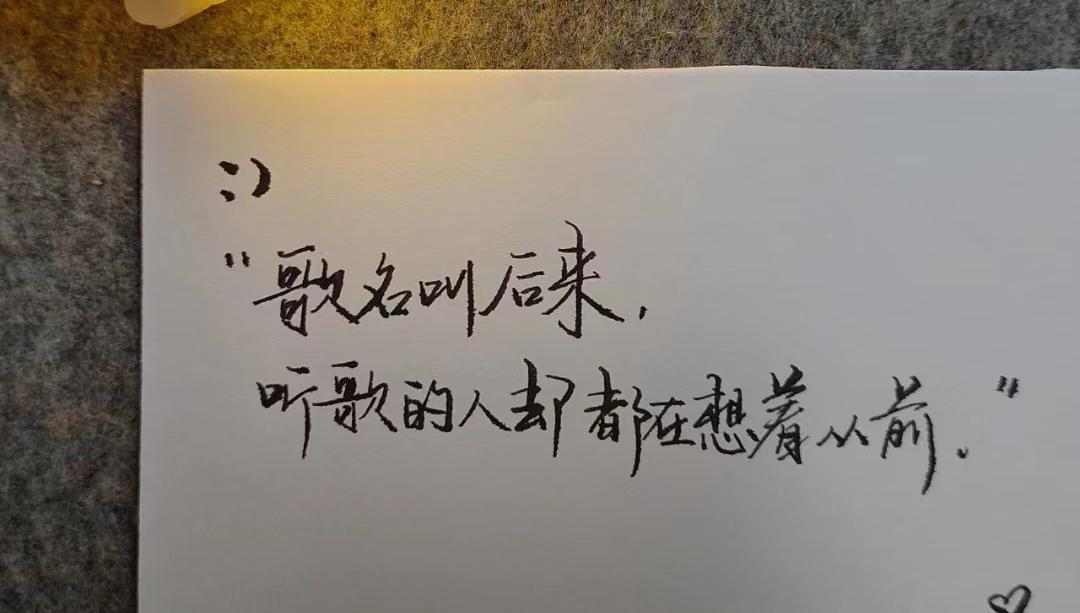 :)
"歌名叫后来,
听歌的人却都在想着从前."